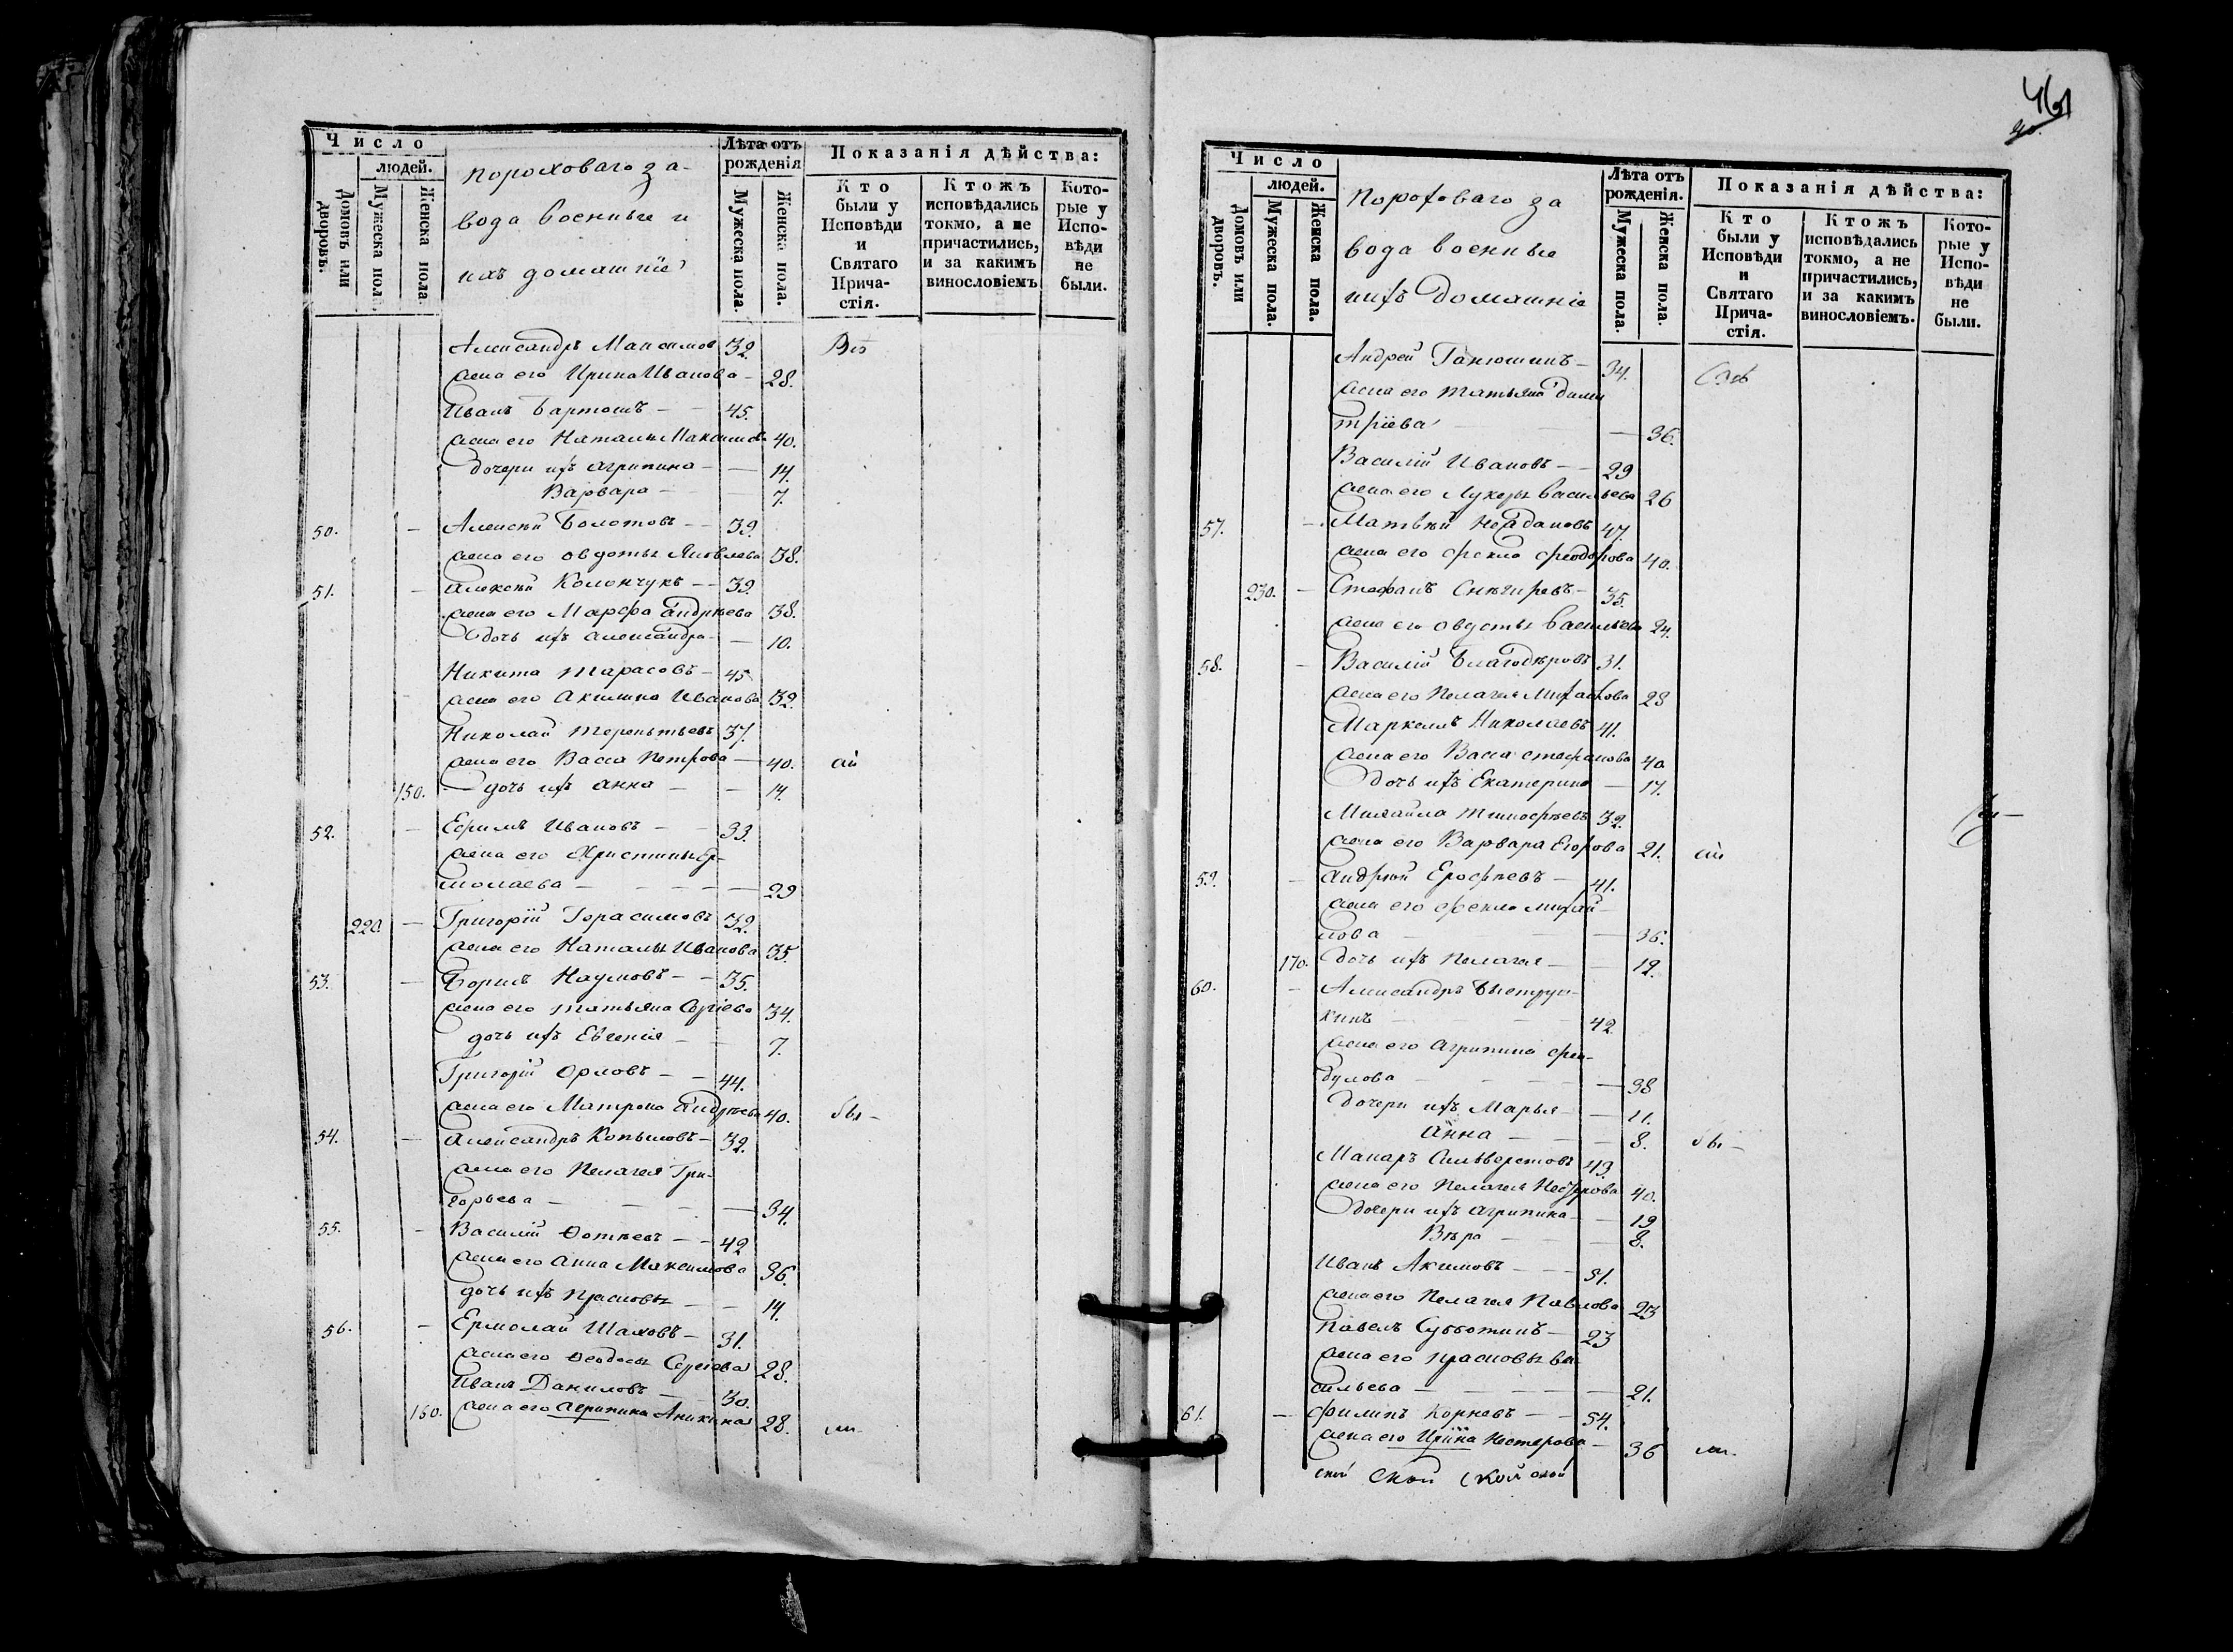 Число
людей.
Домовъ или дворовъ.
Мужеска пол.
Женска пола.
пороховаго за-
вода военные и
ихъ домашніе
Лѣта отъ рожденія
Мужеска пола.
Женска пола.
Показанія дѣйства:
Кто были у Исповѣди и Святаго Прича-стія.
Ктожъ исповѣдались токмо, а не причастились, и за какимъ винословіемъ
Кото-рые у Испо-вѣди не были.
Александръ Максимов 32.
жена его Ирина Иванова - 28.
Иванъ Бартошъ - - 45.
жена его Наталья Максимова 40.
дочери ихъ Агрипина - - 14.
Варвара - - 7.
50. - Алексѣй Болотовъ - - 39.
жена его Овдотья Яковлева 38.
51. - Алексѣй Колончукъ - - 39.
жена его Марфа Андрѣева 38.
дочь ихъ Александра - - 10.
Никита Тарасовъ - 45
жена его Акилина Иванова 39.
Николай Терентьевъ 37.
жена его Васса Петрова - 40. ли
150. - дочь ихъ Анна - - 14.
52. - Ефимъ Ивановъ - 33.
жена его Христинья Ер-
молаева - - - - 29
220. - Григорій Герасимовъ 32.
жена его Наталья Иванова 35.
53. - Борисъ Наумовъ - - 35.
жена его Татьяна Сергіева 34.
дочь ихъ Евгенія - - 7.
Григорій Орловъ - - 44.
жена его Матрона Андрѣева 40. бы-
54. - Александръ Копыловъ - 32.
жена его Пелагея Гри-
горьева - - - - 34.
55. - Василій Фотѣевъ - - 42
жена его Анна Максимова 36.
дочь ихъ Прасковья - - 14.
56. - Ермолай Шаховъ - 31.
жена его Феодосья Сергіева 28.
Иванъ Даниловъ - - 30.
160. жена его Агрипина Аникина 28. ли-
461
Число
людей.
Домовъ или дворовъ.
Мужеска пола.
Женска пола.
Пороховаго за
вода военные
ихъ домашніе
Лѣта отъ рожденія.
Мужеска пола.
Женска пола.
Показанія дѣйства:
Кто были у Исповѣди и Святаго Прича-стія.
Ктожъ исповѣдались токмо, а не причастились, и за какимъ винословіемъ.
Кото-рые у Испо-вѣди не были.
Андрей Ганюшинъ - 34.
жена его Татьяна Дими
тріева - - - 36.
Василій Ивановъ - - 29
жена его Лукерья Васильева 26
57. - Матвѣй 47.
жена его Фекла Феодорова 40.
230. - Стефанъ Снѣгиревъ - 35.
жена его Овдотья Васильева 24.
58. - Василій Благодѣровъ 31.
жена его Пелагея 28
Маркелъ Николаевъ 41.
жена его Васса Стефанова 40
дочь ихъ Екатерина - 17.
Михайла Тимофѣевъ 32.
жена его Варвара Егорова 21. ли
59. - Андрей Ерофѣевъ - 41.
жена его Фекла Михай-
лова - - - 36.
170. дочь ихъ Пелагея - - 12.
60. - Александръ Быструш-
кинъ - - - - 42.
жена его Агрипина Фео-
дулова - - - - 38
дочери ихъ Марья - - 11.
Анна - - - 8. бы-
Макаръ Сильверстовъ 43.
жена его Пелагея 40.
дочери ихъ Агрипина - - 19
Вѣра - - - 8.
Иванъ Акимовъ - - - 31.
жена его Пелагея Павлова 23
Павелъ Субботинъ - 23
жена его Прасковья Ва
сильева - - - - 21.
61. - Филипъ Корневъ - - 54.
жена его Ирина Нестерова - 36 ли-
ской ской ской ской